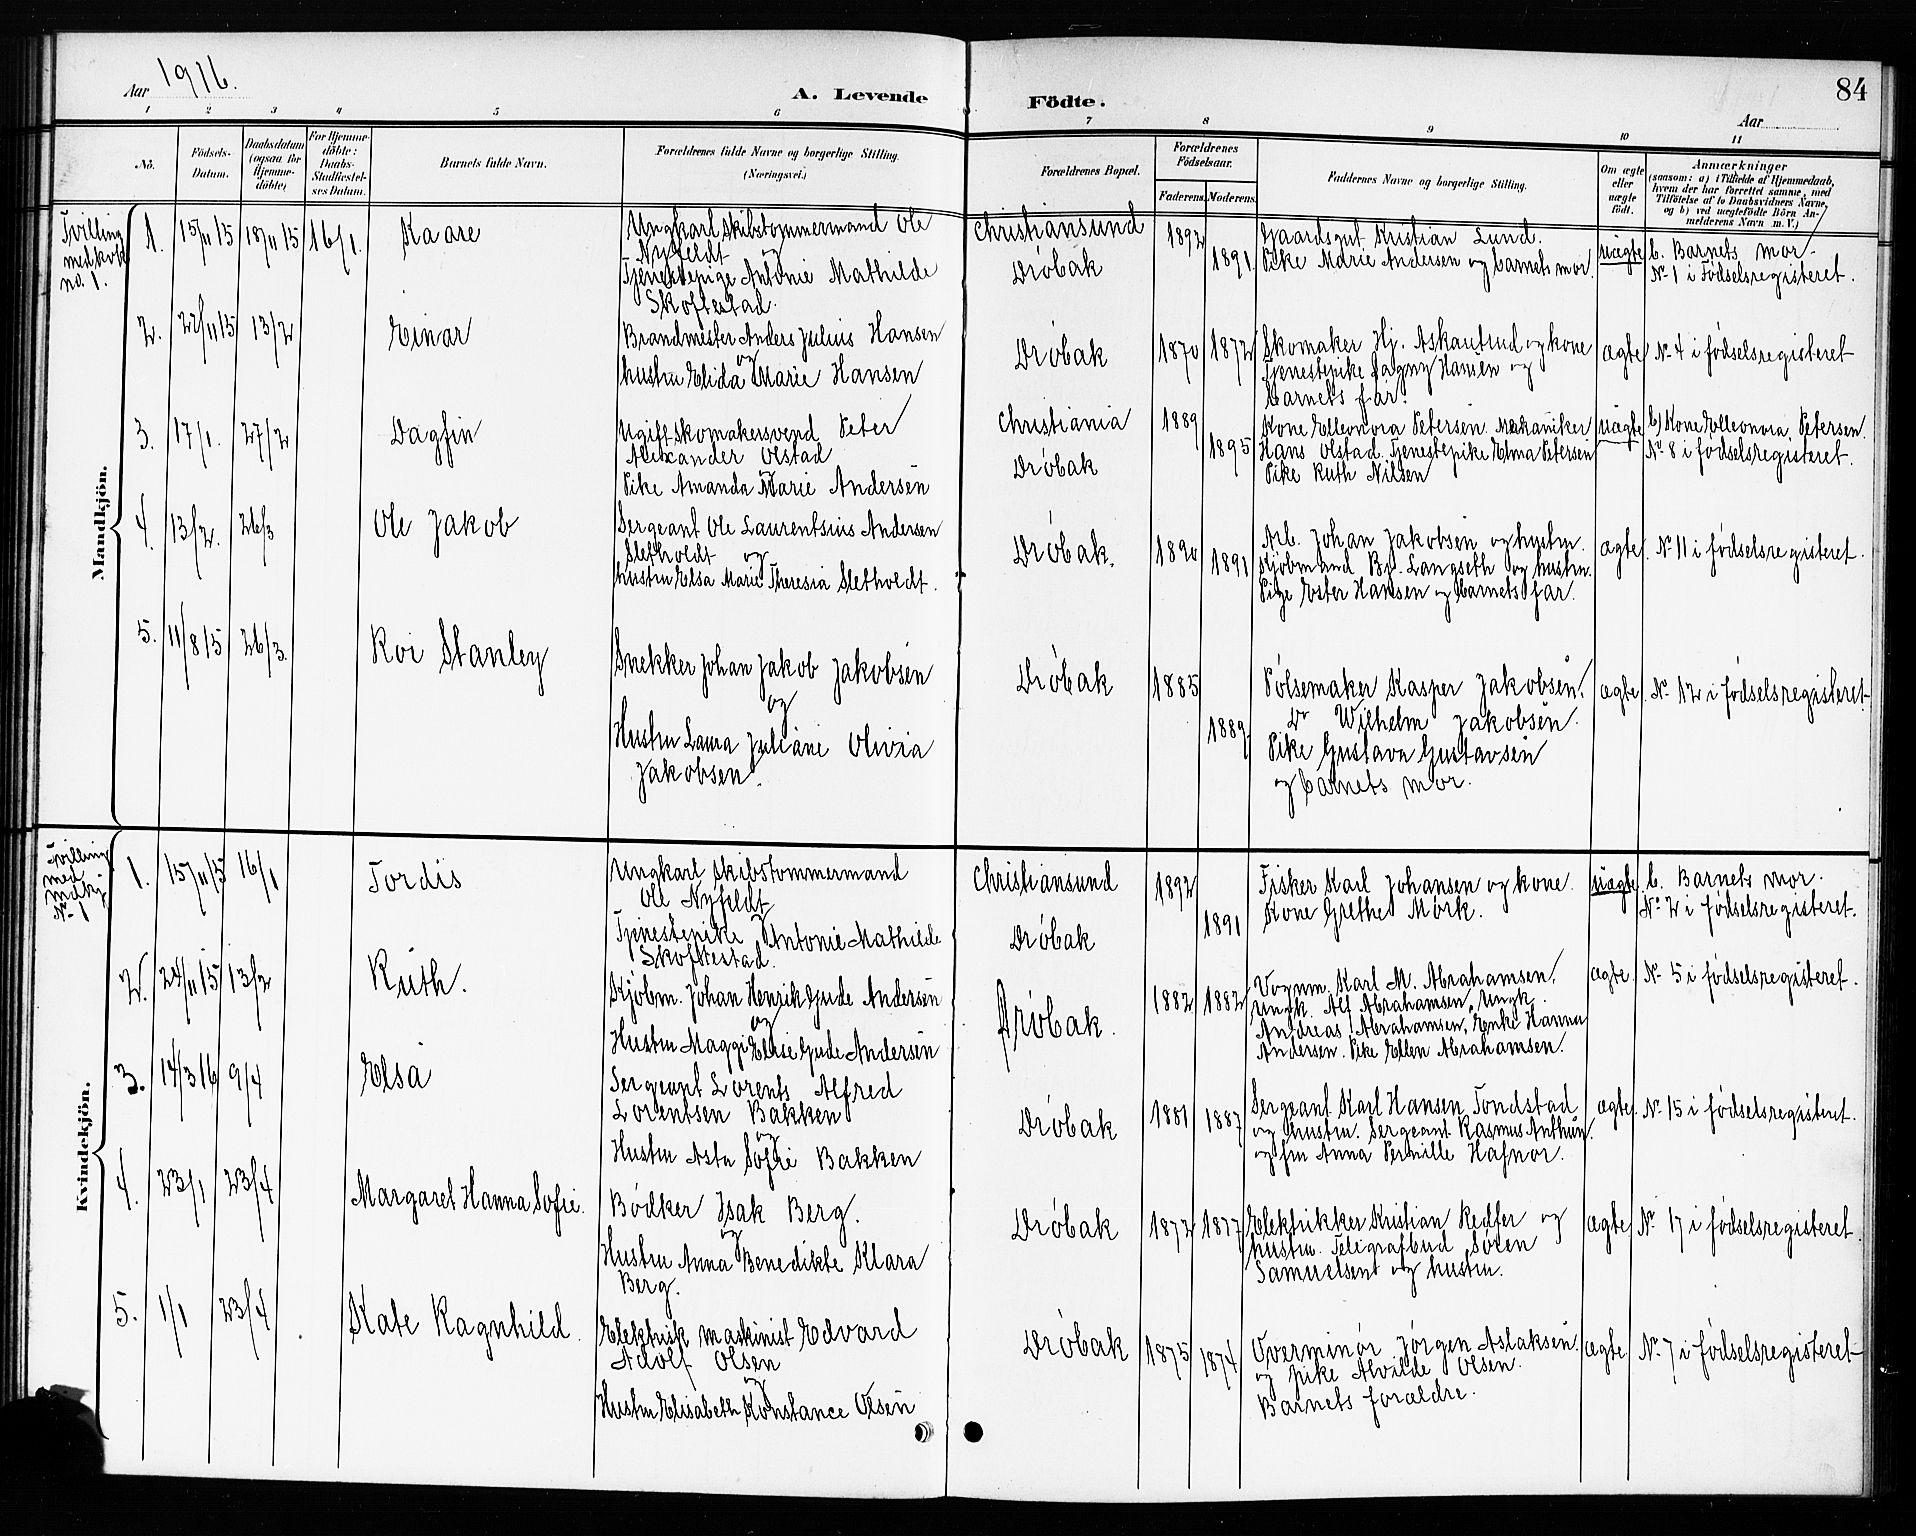 Aar 1916.
A. Levende Födte.
84
Aar
1 2 3 4 5 6 7 8 9 10 11
No.
Födsels-Datum.
Daabsdatum (ogsaa for Hjemmedöbte)
For Hjemmedöbte: Daabs-Stadfæstelses Datum.
Barnets fulde Navn.
Forældrenes fulde Navne og borgerlige Stilling. (Næringsvei.)
Forældrenes Bopæl.
Forældrenes Födselsaar.
Faderens. Moderens.
Faddernes Navne og borgerlige Stilling.
Om ægte eller uægte födt.
Anmærkninger
(saasom: a) i Tilfælde af Hjemmedaab, hvem der har forrettet samme, med Tilföielse af to Daabsvidners Navne, og b) ved uægtefödte Börn Anmelderens Navn m. V.)
Mandkjön.
Tvilling
med kvk
no. 1.
1. 15/11 15 18/11 15 16/1. Kaare
Ungkarl Skibstømmermand Ole
Nyfeldt og
Tjenestepige Antonie Mathilde
Skoftestad.
Christiansund
Drøbak
1892 1891
Gaardsgut Kristian Lund.
Pike Marie Andersen og barnets mor.
uægte
b. Barnets mor.
No 1 i Fødselsregisteret.
2. 22/11 15 13/2 Einar
Brandmester Anders Julius Hansen
og
hustru Elida Marie Hansen
Drøbak
1870 1872
Skomaker Hj. Askautrud og kone
Tjenestepike Dagny Hansen og
barnets far.
ægte
No 4 i fødselsregisteret
3. 17/1. 27/2 Dagfin
Ugift skomakersvend Peter
Alexander Olstad
og
Pike Amanda Marie Andersen
Christiania
Drøbak
1889 1895
Kone Elleonora Petersen. Mekaniker
Hans Olstad. Tjenestepike Elma Petersen
Pike Ruth Nilsen
uægte
b) Kone Elleonora Petersen.
No 8 i fødselsregisteret.
4. 13/2. 26/3 Ole Jakob
Sergeant Ole Laurentsius Andersen
Sletholdt og
hustru Elsa Marie Theresia Sletholdt.
Drøbak.
1890 1891
Arb. Johan Jakobsen og hustru.
Kjøbmand Br. Langseth og hustru.
Pige Ester Hansen og barnets far.
ægte
No 11 i fødselsregisteret.
5. 11/8 15 26/3. Roi Stanley
Snekker Johan Jakob Jakobsen
og
Hustru Laura Juliane Olivia
Jakobsen.
Drøbak
1885 1889
Pølsemaker Kasper Jakobsen.
Do Wilhelm Jakobsen.
Pike Gustava Gustavsen
og barnets mor.
ægte
No 12 i fødselsregisteret
Kvindekjön.
Tvilling
med
mdkj
No 1
1. 15/11 15 16/1 Tordis
Ungkarl Skibstømmermand
Ole Nyfeldt
og
Tjenestepike Antonie Mathilde
Skoftestad.
Christiansund
Drøbak
1892 1891
Fisker Karl Johansen og kone.
Kone Grethe Mørk.
uægte
b. Barnets mor.
No 2 i fødselsregisteret.
2. 24/11 15 13/2 Ruth.
Kjøbm. Johan Henrik Gude Andersen
og
Hustru Maggi Elise Gude Andersen
Drøbak.
1882 1882
Vognm. Karl M. Abrahamsen.
Ungk. Alf Abrahamsen, Ungk.
Andreas Abrahamsen, Enke Hanna
Andersen. Pike Ellen Abrahamsen.
ægte.
No 5 i fødselsregisteret.
3. 14/3 16 9/4 Elsa
Sergeant Lorents Alfred
Lorentsen Bakken
og
Hustru Asta Sofie Bakken
Drøbak
1881 1887
Sergeant Karl Hansen Tondstad
og hustru. Sergeant Rasmus Anthun
og fru Anna Pernille Hafnor.
ægte.
No 15 i fødselsregisteret.
4. 23/1 23/4 Margaret Hanna Sofie.
Bødker Isak Berg.
og
Hustru Anna Benedikte Klara
Berg.
Drøbak
1872 1877
Elektrikker Kristian Redfer og
hustru. Telegrafbud Søren
Samuelsen og hustru.
ægte
No 17 i fødselsregisteret.
5. 1/1 23/4 Kate Ragnhild
Elektrisk maskinist Edvard
Adolf Olsen
og
Hustru Elisabeth Konstance Olsen
Drøbak
1875 1874
Overminør Jørgen Aslaksen.
og pike Alvilde Olsen.
Barnets forældre.
ægte
No 7 i fødselsregisteret